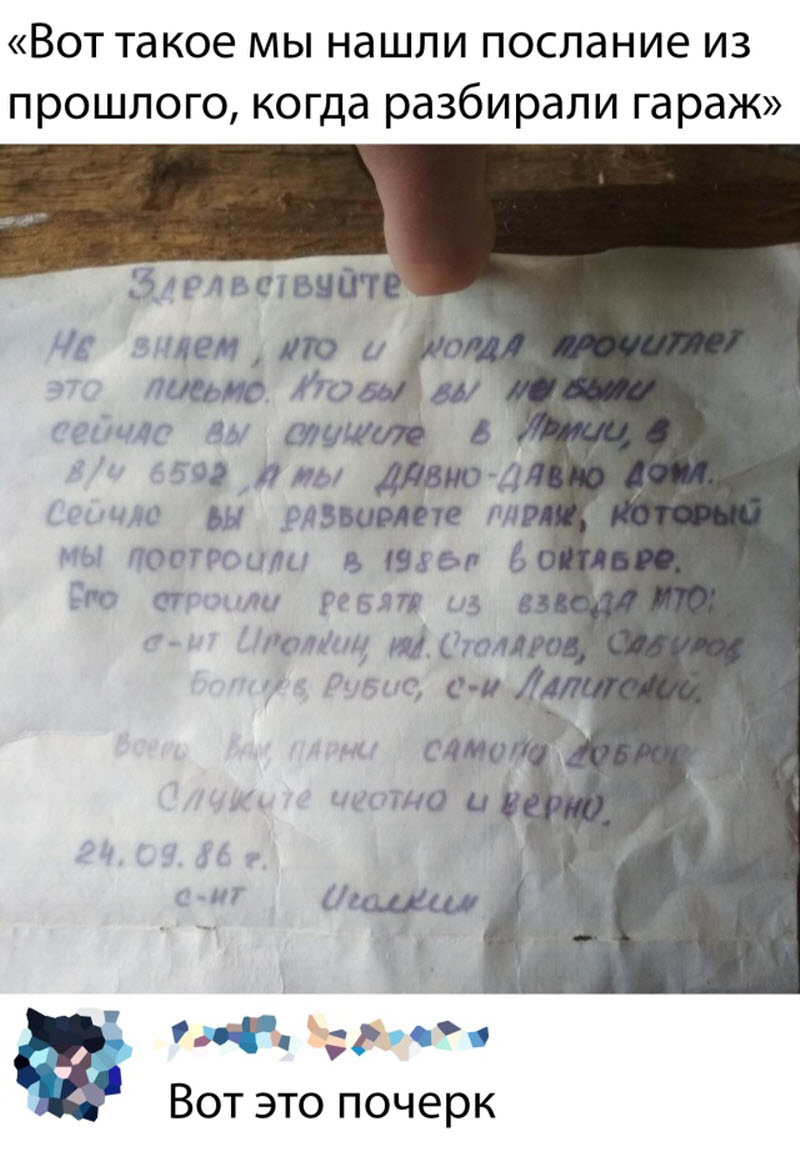 «Вот такое мы нашли послание из
прошлого, когда разбирали гараж»
Здравствуйте
Не знаем, кто и когда прочитает
это письмо. Кто бы вы не были
сейчас вы служите в Армии, в
в/ч 6592, а мы давно-давно дома.
Сейчас вы разбираете гараж, который
мы построили в 1986г в октабре.
Его строили ребята из взвода МТО:
с-нт Иголкин, Столаров, Сабуров,
Рубис, с-н Лапитский.
Всего Вам, парни самого доброго
Служите честно и верно.
24.09.86 г.
с-нт Иголкин
Вот это почерк